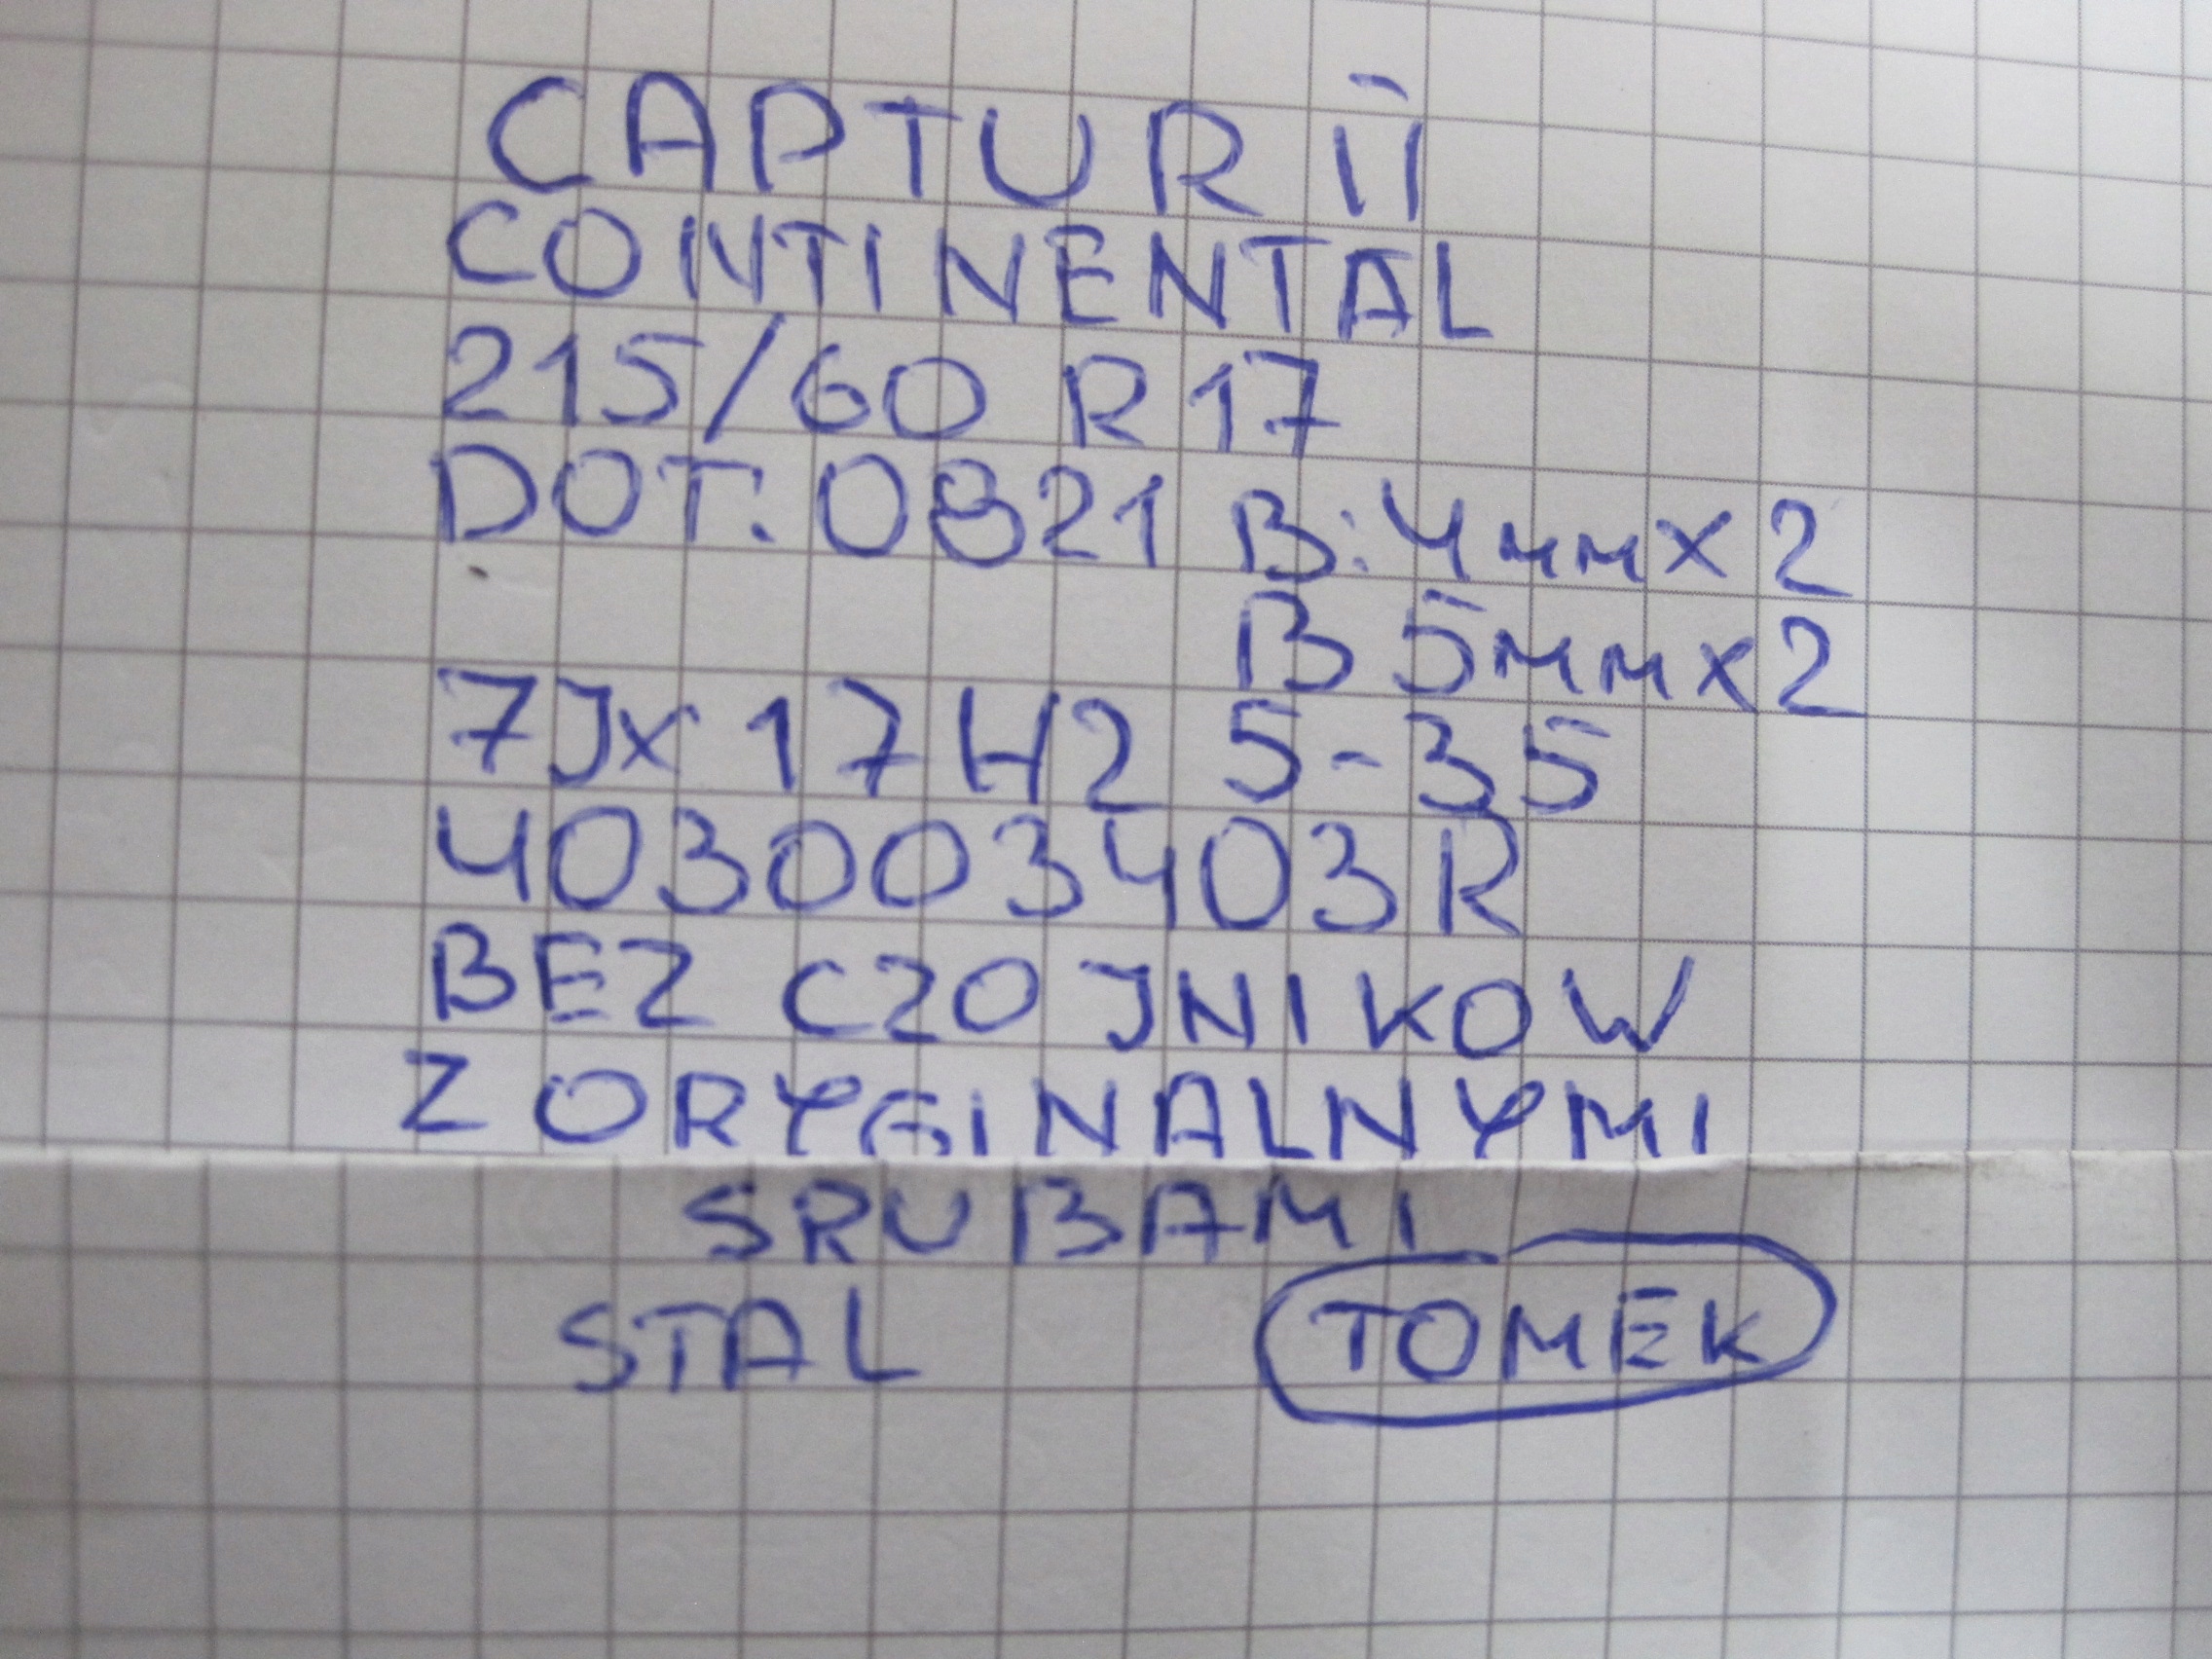 CAPTUR II
CONTINENTAL
215/60 R17
DOT: 0821 B: 4mm x 2
B 5mm x 2
7Jx17H2 5-35
403003403R
BEZ CZOJNIKOW
Z ORYGINALNYMI
SRUBAMI
STAL TOMEK